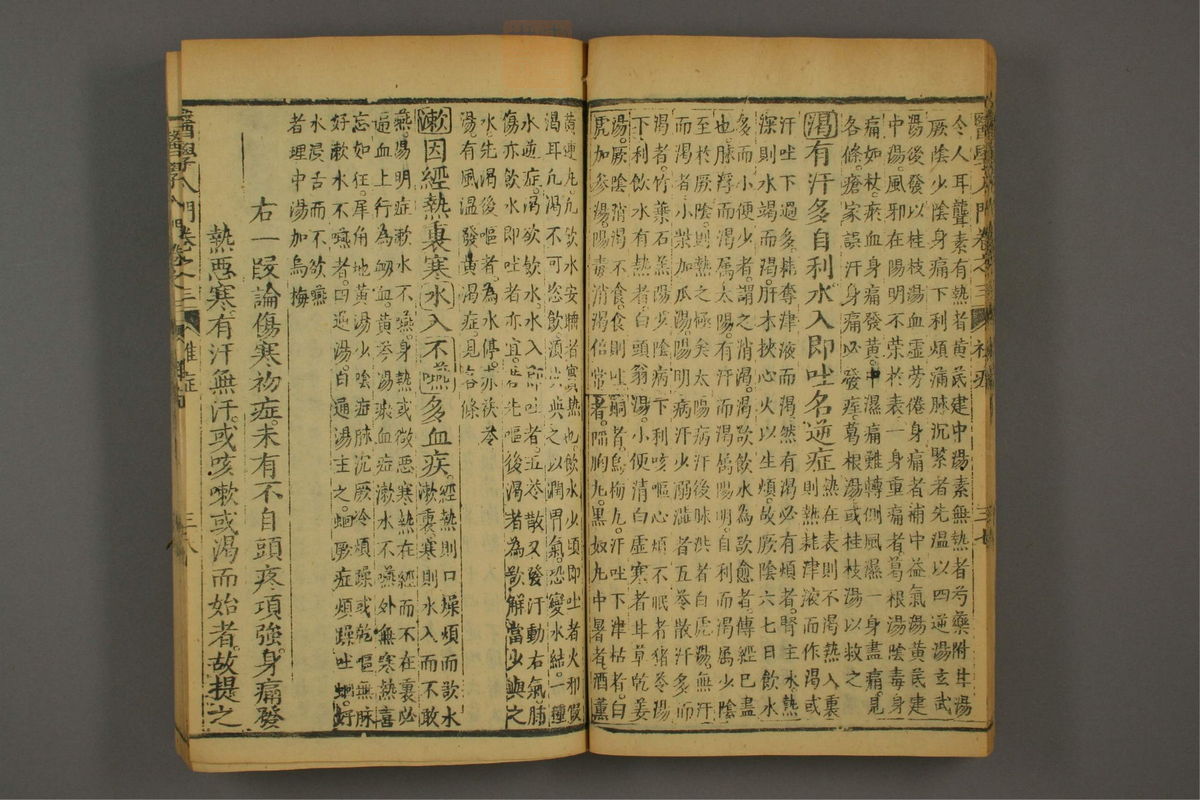 醫學入門 卷之三 初症 三七
令人耳聾素有熱者黃芪建中湯素無熱者芍藥附甘湯
厥陰少陰身痛下利煩滿脉沉緊者先溫以四逆湯玄武
湯後發以桂枝湯血虛勞倦身痛者補中益氣湯黃芪建
中湯風邪在陽明不榮於表一身重痛者葛根湯陰毒身
痛如杖瘀血身痛發黃中濕痛難轉側風濕一身盡痛見
各條瘡家誤汗身痛必發痓葛根湯或桂枝湯以救之
渴有汗多自利水入即吐名逆症熱在表則不渴熱入裏則熱耗津液而作渴或
汗吐下過多耗奪津液而渴然有渴必有煩者腎主水熱
深則水竭而渴肝木挾心火以生煩故厥陰六七日飲水
多而小便少者謂之消渴渴欲飲水為欲愈者傳經已盡
也脉浮而渴屬太陽有汗而渴屬陽明自利而渴屬少陰
至於厥陰則熱之極矣太陽病汗後脉洪者白虎湯無汗
而渴者小柴加瓜蔞陽明病汗少溺澁者五苓散汗多而
渴者竹葉石羔湯少陰病下利咳嘔心煩不眠者猪苓湯
下利飲水有熱者白頭翁湯小便清白虛寒者甘草乾姜
湯厥陰消渴不食食則吐蛔者烏梅丸汗吐下津枯者白
虎加參湯陽毒消渴倍常者陷胸丸黑奴丸中暑者酒薰
黃連丸凡飲水安睡者實熱也飲水少頃即吐者火邪假
渴耳凡渴不可恣飲須少與之以潤胃氣恐變水結一種
水逆症渴欲飲水水入即吐者五苓散又發汗動右氣肺
傷亦飲水即吐者亦宜若先嘔後渴者為欲解當少與之
水先渴後嘔者為水停赤茯苓
湯有風溫發黃渴症見各條
漱因經熱裏寒水入不嚥多血疾經熱則口燥煩而欲水漱裏寒則水入而不敢
嚥陽明症漱水不嚥身熱或微惡寒熱在經而不在裏必
逼血上行為衂血黃芩湯瘀血症漱水不嚥外無寒熱喜
忘如狂犀角地黃湯少陰症脉沉厥冷煩躁或乾嘔無脉
好漱水不嚥者四逆湯白通湯主之蛔厥症煩躁吐蛔好
水浸舌而不欲嚥
者理中湯加烏梅
右一段論傷寒初症未有不自頭疼項強身痛發
熱惡寒有汗無汗或咳嗽或渴而始者故提之
醫學入門卷之三 雜症 三八